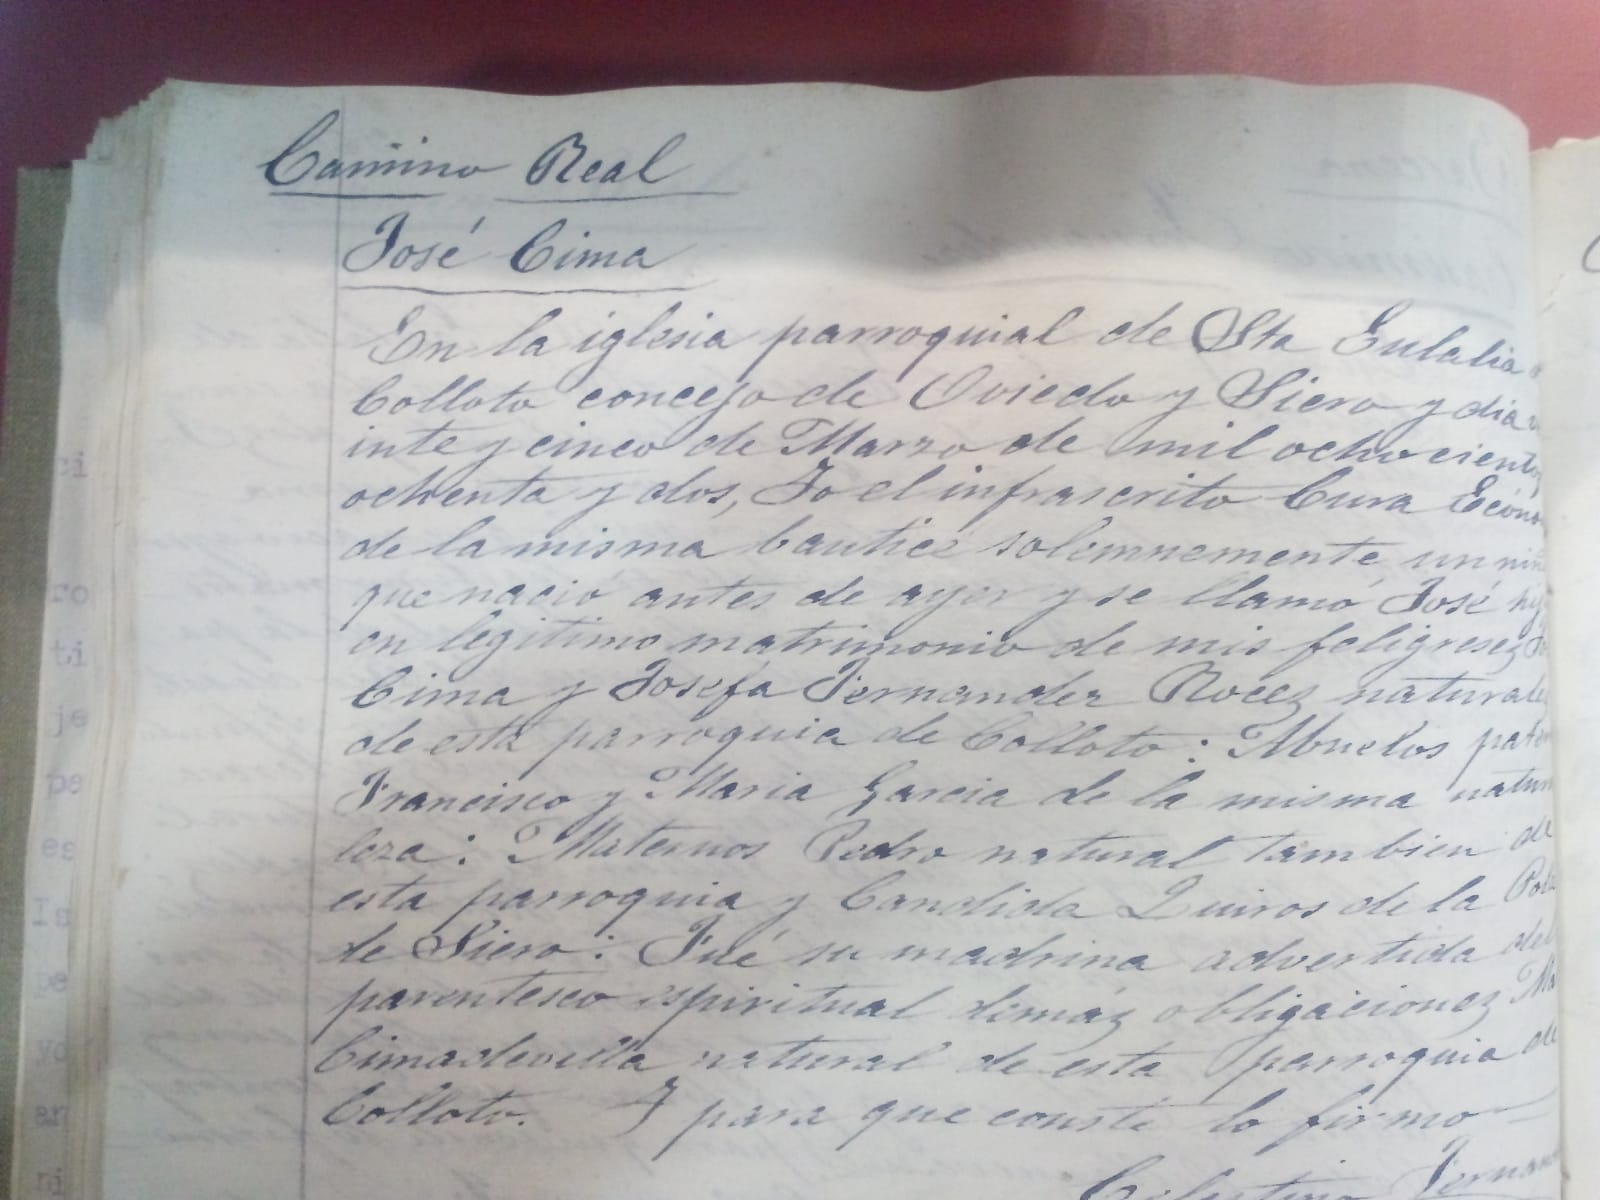 Camino Real
José Cima
En la iglesia parroquial de Sta Eulalia
Colloto concejo de Oviedo y Siero y dia v
inte y cinco de Marzo de mil ocho ciento
ochenta y dos, Yo el infrascrito Cura Ecóno
de la misma bauticé solemnemente un niñ
que nació antes de ayer y se llamó José hij
en legitimo matrimonio de mis feligresez
Cima y Josefa Fernandez Rocez naturale
de esta parroquia de Colloto: Abuelos pater
Francisco y Maria Garcia de la misma natura
leza: Maternos Pedro natural tambien de
esta parroquia y Candida Quiros de la Pola
de Siero: Fué su madrina advertida del
parentesco espiritual demáz obligacionez Ma
Cimadevilla natural de esta parroquia de
Colloto. Y para que conste lo firmo
Celestino Fernan
ci
ro
ti
je
pe
es
be
yo
ar
ni